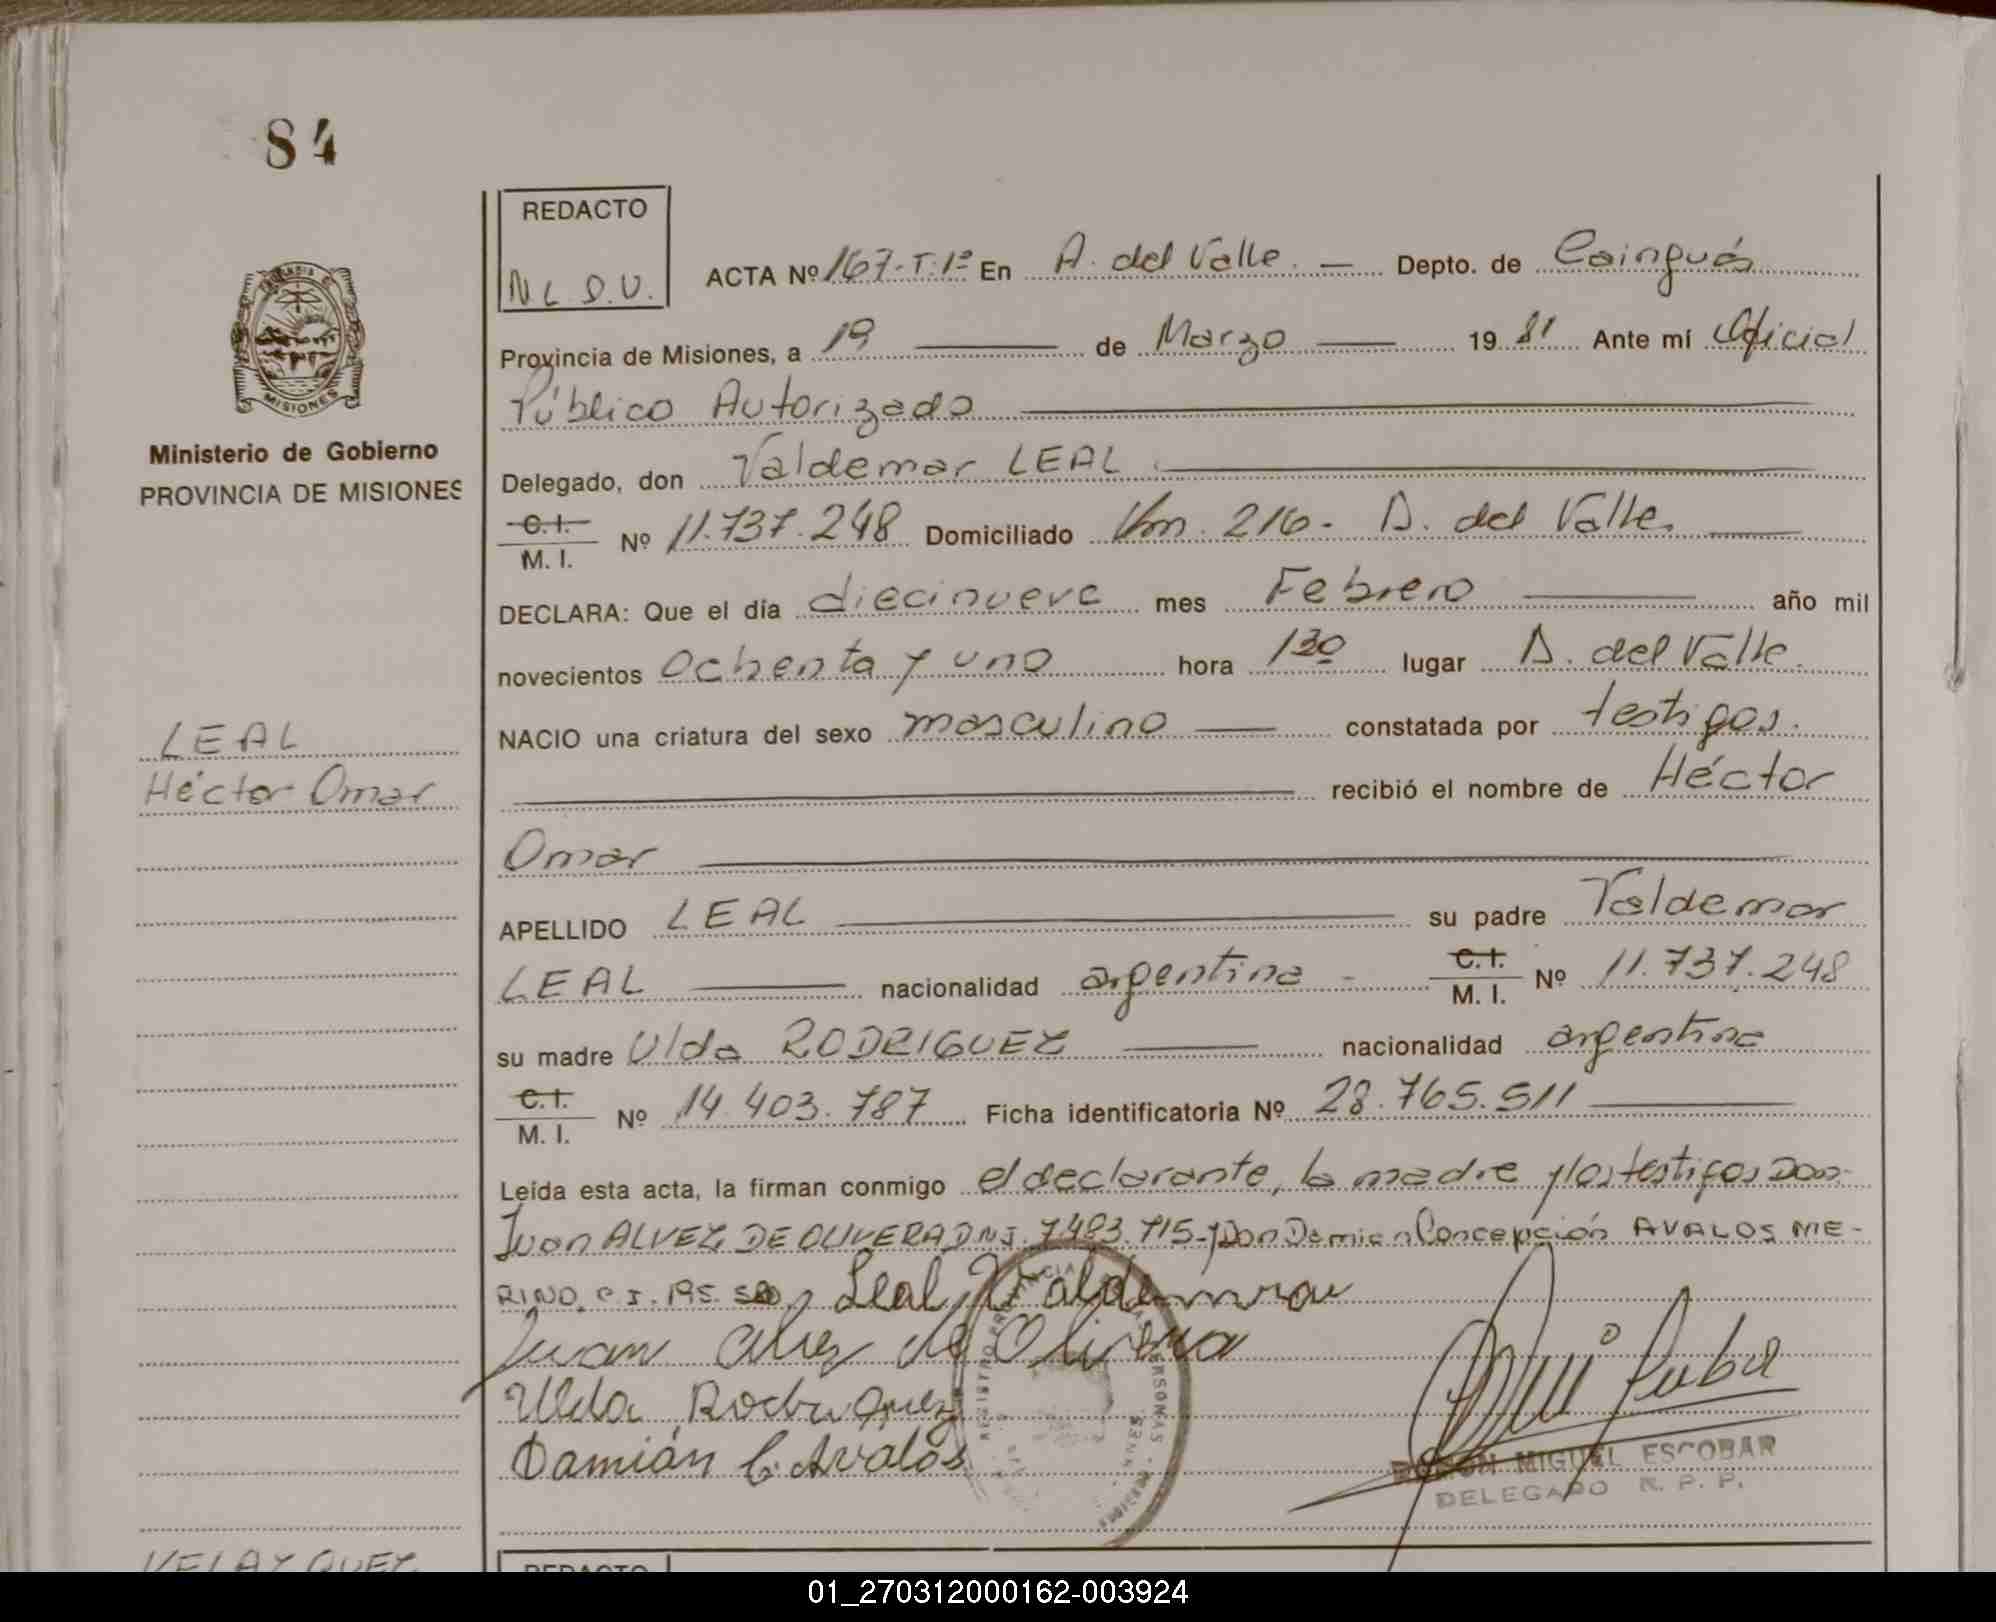 84
REDACTO
N L D.V.
ACTA Nº 167-T.1º En A. del Valle. — Depto. de Cainguás
Provincia de Misiones, a 19 de Marzo 19 81 Ante mí Oficial
Público Autorizado
Ministerio de Gobierno
PROVINCIA DE MISIONES
Delegado, don Valdemar LEAL.
C.I. / M. I. Nº 11.737.248 Domiciliado Km. 216- A. del Valle.
DECLARA: Que el día diecinueve mes Febrero año mil
novecientos ochenta y uno hora 130 lugar A. del Valle.
NACIO una criatura del sexo masculino constatada por testigos.
LEAL
Héctor Omar
recibió el nombre de Héctor
Omar
APELLIDO LEAL su padre Valdemar
LEAL nacionalidad argentina - C.I. / M. I. Nº 11.737.248
su madre Ulda RODRIGUEZ nacionalidad argentina
C.I. / M. I. Nº 14.403.787 Ficha identificatoria Nº 28.765.511
Leída esta acta, la firman conmigo el declarante, la madre y los testigos Don
Juan ALVEZ DE OLIVERA DNI. 7483.715-y Don Damian Concepción AVALOS ME-
RINO C.I. 195.
Leal Valdemar
Juan Alvez de Olivera
Ulda Rodriguez
Damián C. Avalos
REGISTRO PROVINCIAL PERSONAS
RAMON MIGUEL ESCOBAR
DELEGADO R. P. P.
VELAZQUEZ
REDACTO
01_270312000162-003924